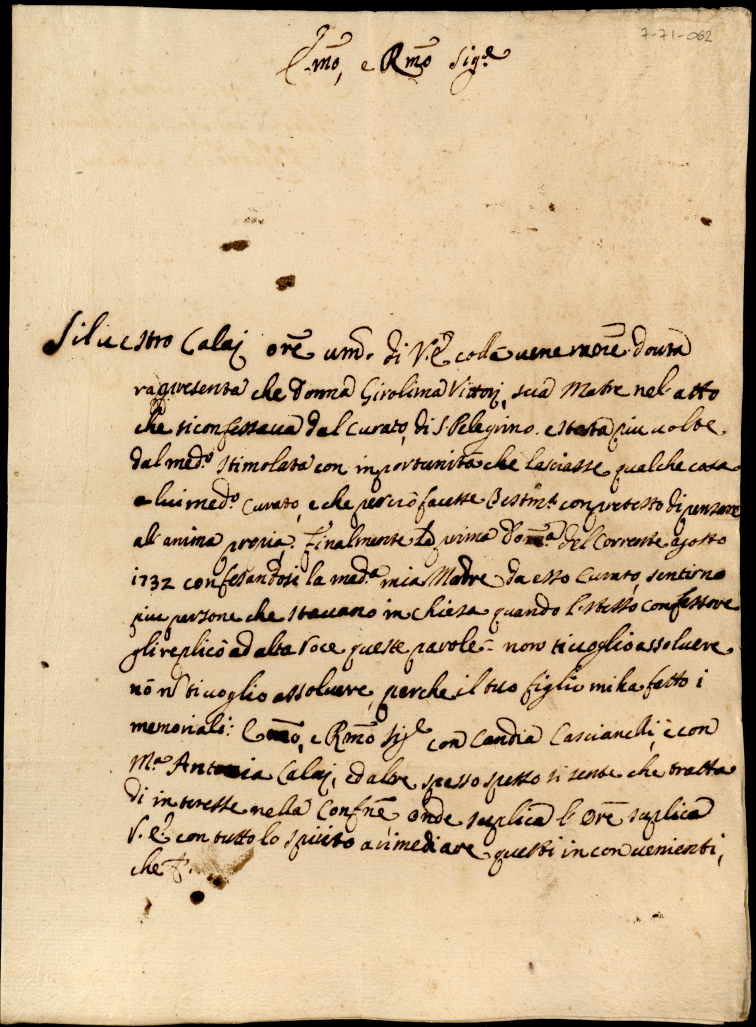 7-71-062
Emo, e Rmo Sig.e
Siluestro Calaj ore umo. di V.E. colla deuuta
rapresenta che Donna Girolima Vittorj, sua Matre nel atto
che si confessaua dal Curato di S. Pelegrino e stata piu uolte
dal med.o stimolata con inportunità che lasciasse qualche cosa
a lui med.o Curato, e che perciò facesse Testm.to con pretesto di pensare
all'anima propia. Finalmente la prima Dom.a del Corrente agosto
1732 confesandosi la med.a mia Madre da esso Curato, sentirno
piu persone che stauano in chiesa quando l'stesso confessore
gli replicò ad alta voce queste parole = non ti uoglio assoluere
nò nò ti uoglio assoluere, perche il tuo figlio mi ha fatto i
memoriali: Emo, e Rmo Sig.e con Candia Cascianelli, e con
M.a Antonia Calaj, ed altre spesso spesso si sente che tratta
di interesse nella Confne onde suplica l'Ore suplica
V.E. con tutto lo spirito a rimediare questi inconuenienti,
che